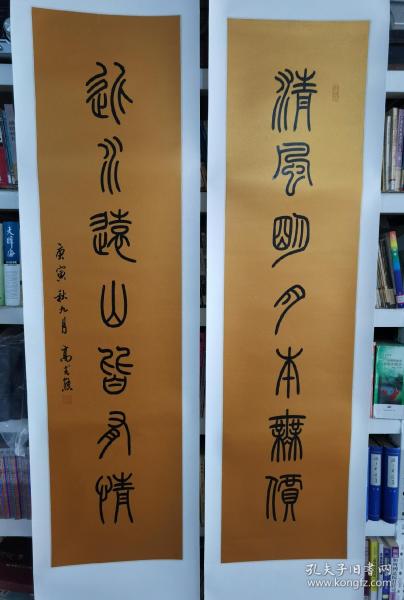 清風明月本無價
近水遠山皆有情
庚寅秋九月 高式熊
孔夫子旧书网
www.kongfz.com